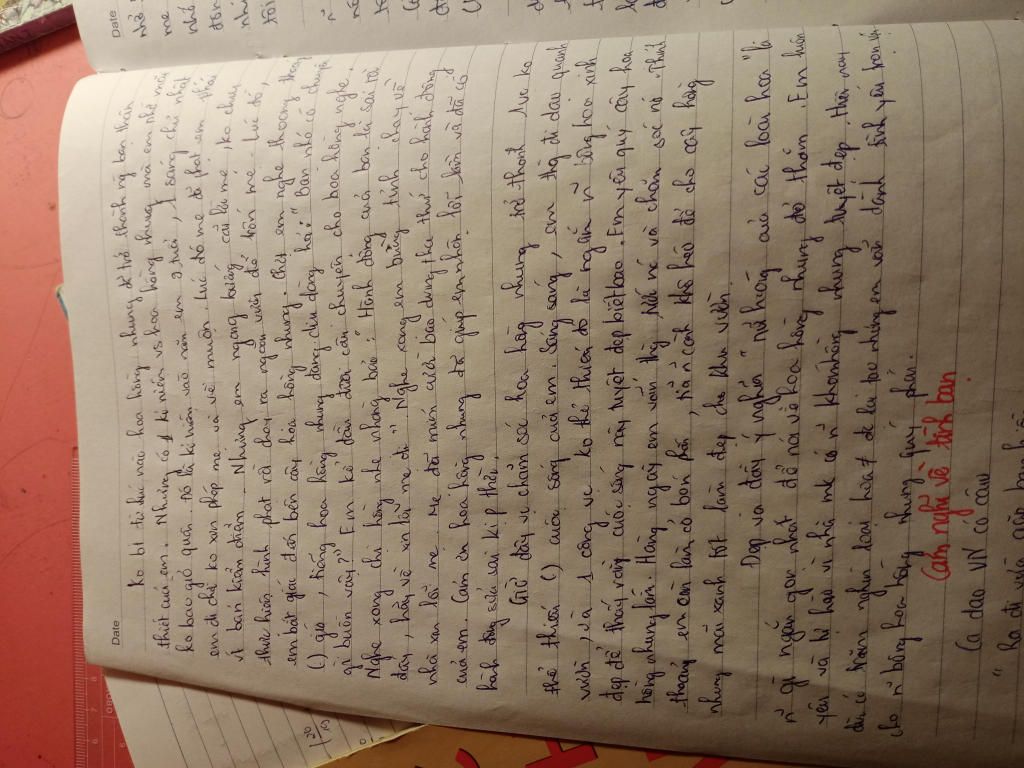 Date
Ko bt từ lúc nào hoa hồng nhung đã trở thành ng bạn thân
thiết của em. Nhưng có 1 kỉ niệm vs hoa hồng nhung mà em nhớ mãi
ko bao giờ quên. Đó là kỉ niệm vào năm em 9 tuổi, 1 sáng chủ nhật
em đi chơi ko xin phép mẹ và về muộn. Lúc đó mẹ đã phạt em phải
vt bản kiểm điểm. Nhưng em ngang bướng cãi lời mẹ, ko chịu
thực hiện hình phạt và chạy ra ngoài vườn để trốn mẹ. Lúc đó,
em bất giác đến bên cây hoa hồng nhung. Chợt em nghe thoang thoảng
() gió, tiếng hoa hồng nhung đang dịu dàng hỏi: " Bạn nhỏ có chuyện
gì buồn vậy?" Em kể đầu đuôi câu chuyện cho hoa hồng nghe.
Nghe xong chị hồng nhẹ nhàng bảo: " Hành động của bạn là sai rồi
đấy, hãy về xin lỗi mẹ đi". Nghe xong em bừng tỉnh chạy về
nhà xin lỗi mẹ. Mẹ đã mỉm cười bao dung tha thứ cho hành động
của em. Cảm ơn hoa hồng nhung đã giúp em nhận lỗi lầm và đã có
hành động sửa sai kịp thời.
Giờ đây vc chăm sóc hoa hồng nhung trở thành 1vc ko
thể thiếu () cuộc sống của em. Sáng sáng, em thg đi dạo quanh
vườn, và 1 công vc ko thể thiếu đó là ngắm n~ bông hoa xinh
đẹp để thấy rằng cuộc sống này tuyệt đẹp biết bao. Em yêu quý cây hoa
hồng nhung lắm. Hàng ngày em vẫn thg tưới nc và chăm sóc nó. Thỉnh
thoảng em còn làm cỏ bón phân, tỉa n~ cành khô héo để cho cây hồng
nhung mãi xanh tốt làm đẹp cho khu vườn.
Đẹp và đầy ý nghĩa " nữ hoàng của các loài hoa" là
n~ gì ngắn gọn nhất để nói về hoa hồng nhung đỏ thắm. Em luôn
yêu và tự hào vì nhà mk có n~ khóm hồng nhung tuyệt đẹp. Hiện nay
dù có trăm nghìn loài hoa # đc lai tạo nhưng em vẫn dành tình yêu trọn vẹn
cho n~ bông hoa hồng nhung quý phái.
Cảm nghĩ về tình bạn
Ca dao VN có câu:
Date